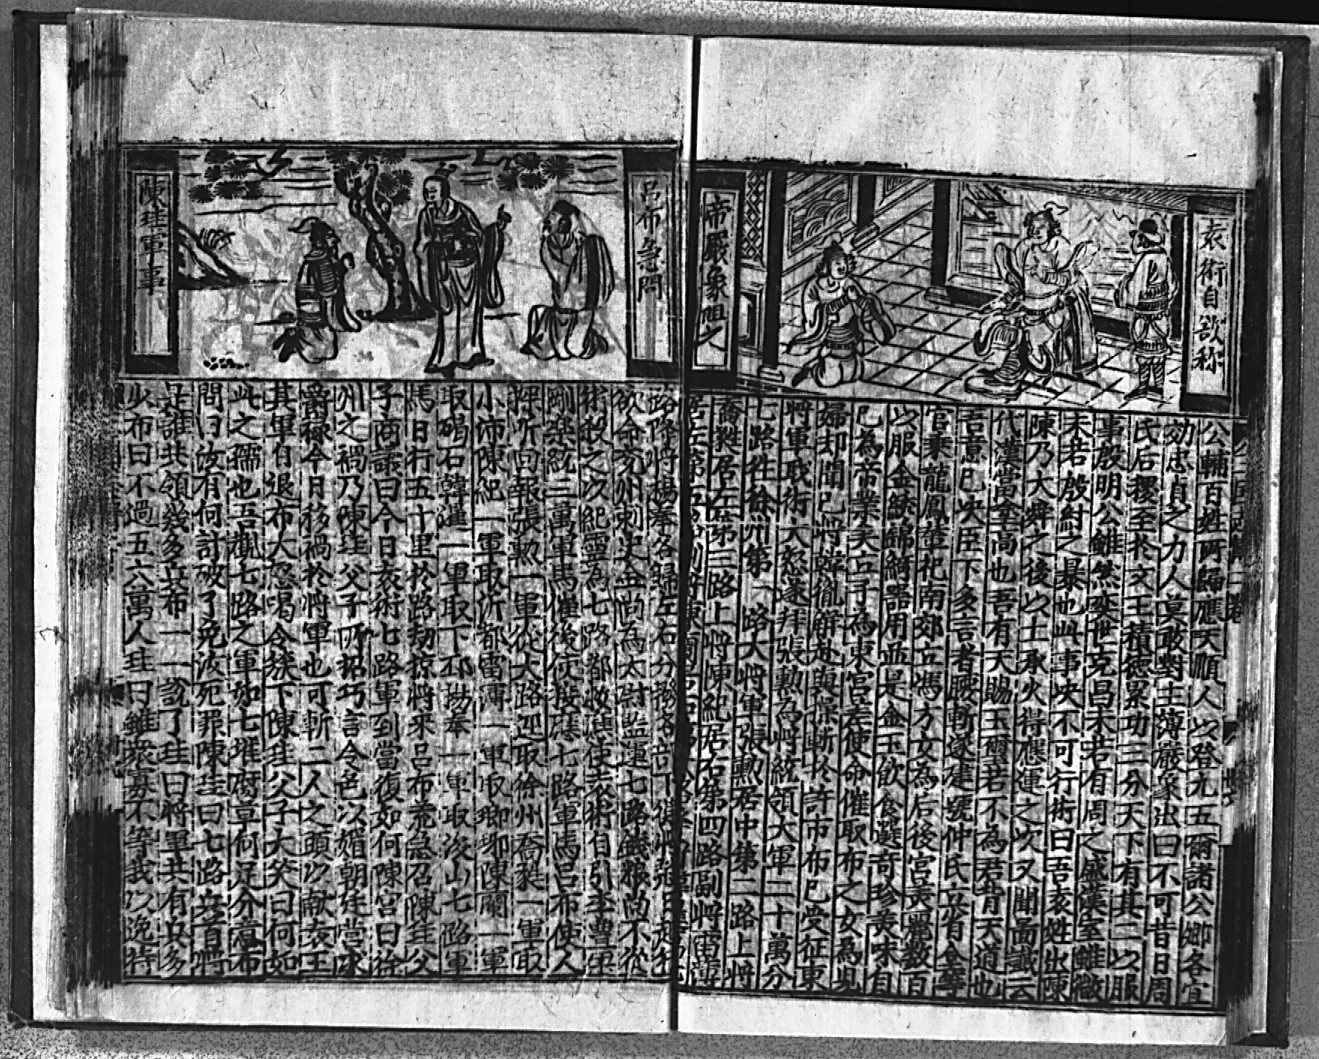 袁術自欲稱
帝嚴象阻之
公輔百姓所歸應天順人以登九五爾諸公卿各宜
効忠貞之力人莫敢對主薄嚴象出曰不可昔日周
氏后稷至於文王積德累功三分天下有其二以服
事殷明公雖然奕世克昌未若有周之盛漢室雖微
未若殷紂之暴也此事決不可行術曰吾袁姓出陳
陳乃大舜之後以土承火得應運之次又聞面讖云
代漢當塗高也吾有天賜玉璽若不為君背天道也
吾意已決臣下多言者勝斬遂建號仲氏立省臺等
官乘龍鳳輦祀南郊立馮方女為后後宮美麗數百
以服金綉錦綺器用並是金玉飲食選奇珍美味自
已為帝業矣立子為東宮差使命催取布之女為児
婦却聞已將韓徹解赴與操斬於許市布已受征東
將軍取術大怒遂拜張勲為將統領大軍二十萬分
七路往徐州第一路大將軍張勲居中第二路上將
喬甤居左第三路上將陳紀居右第四路副將雷薄
呂布急問
陳珪軍事
路降將楊奉各歸左右分撥各部下
欲命兗州刺史金尚為太尉監運七路錢糧尚不從
術殺之次紀靈為七路都救應使袁術自引李豐軍
剛樂就三萬軍馬催後使接應七路軍馬呂布使人
捍听回報張勲一軍從大路迎取徐州喬甤一軍取
小沛陳紀一軍取沂都雷薄一軍取瑯琊陳蘭一軍
取碣石韓暹一軍取下邳楊奉一軍取浚山七路軍
馬日行五十里於路刼掠將來呂布荒急召陳珪父
子商議曰今日袁術七路軍到當復如何陳宮曰徐
州之禍乃陳珪父子所招巧言令色以媚朝廷嘗求
爵祿今日移禍於將軍也可斬二人之頭以献袁王
其軍自退布大怒喝令簇下陳珪父子大笑曰何如
此之懦也吾觀七路之軍如七堆腐草何足介意布
問曰汝有何計破了免汝死罪陳珪曰七路安首將
是誰共領幾多兵布一一說了珪曰將軍共有兵多
少布曰不過五六萬人珪曰雖衆寡不等我以逸待